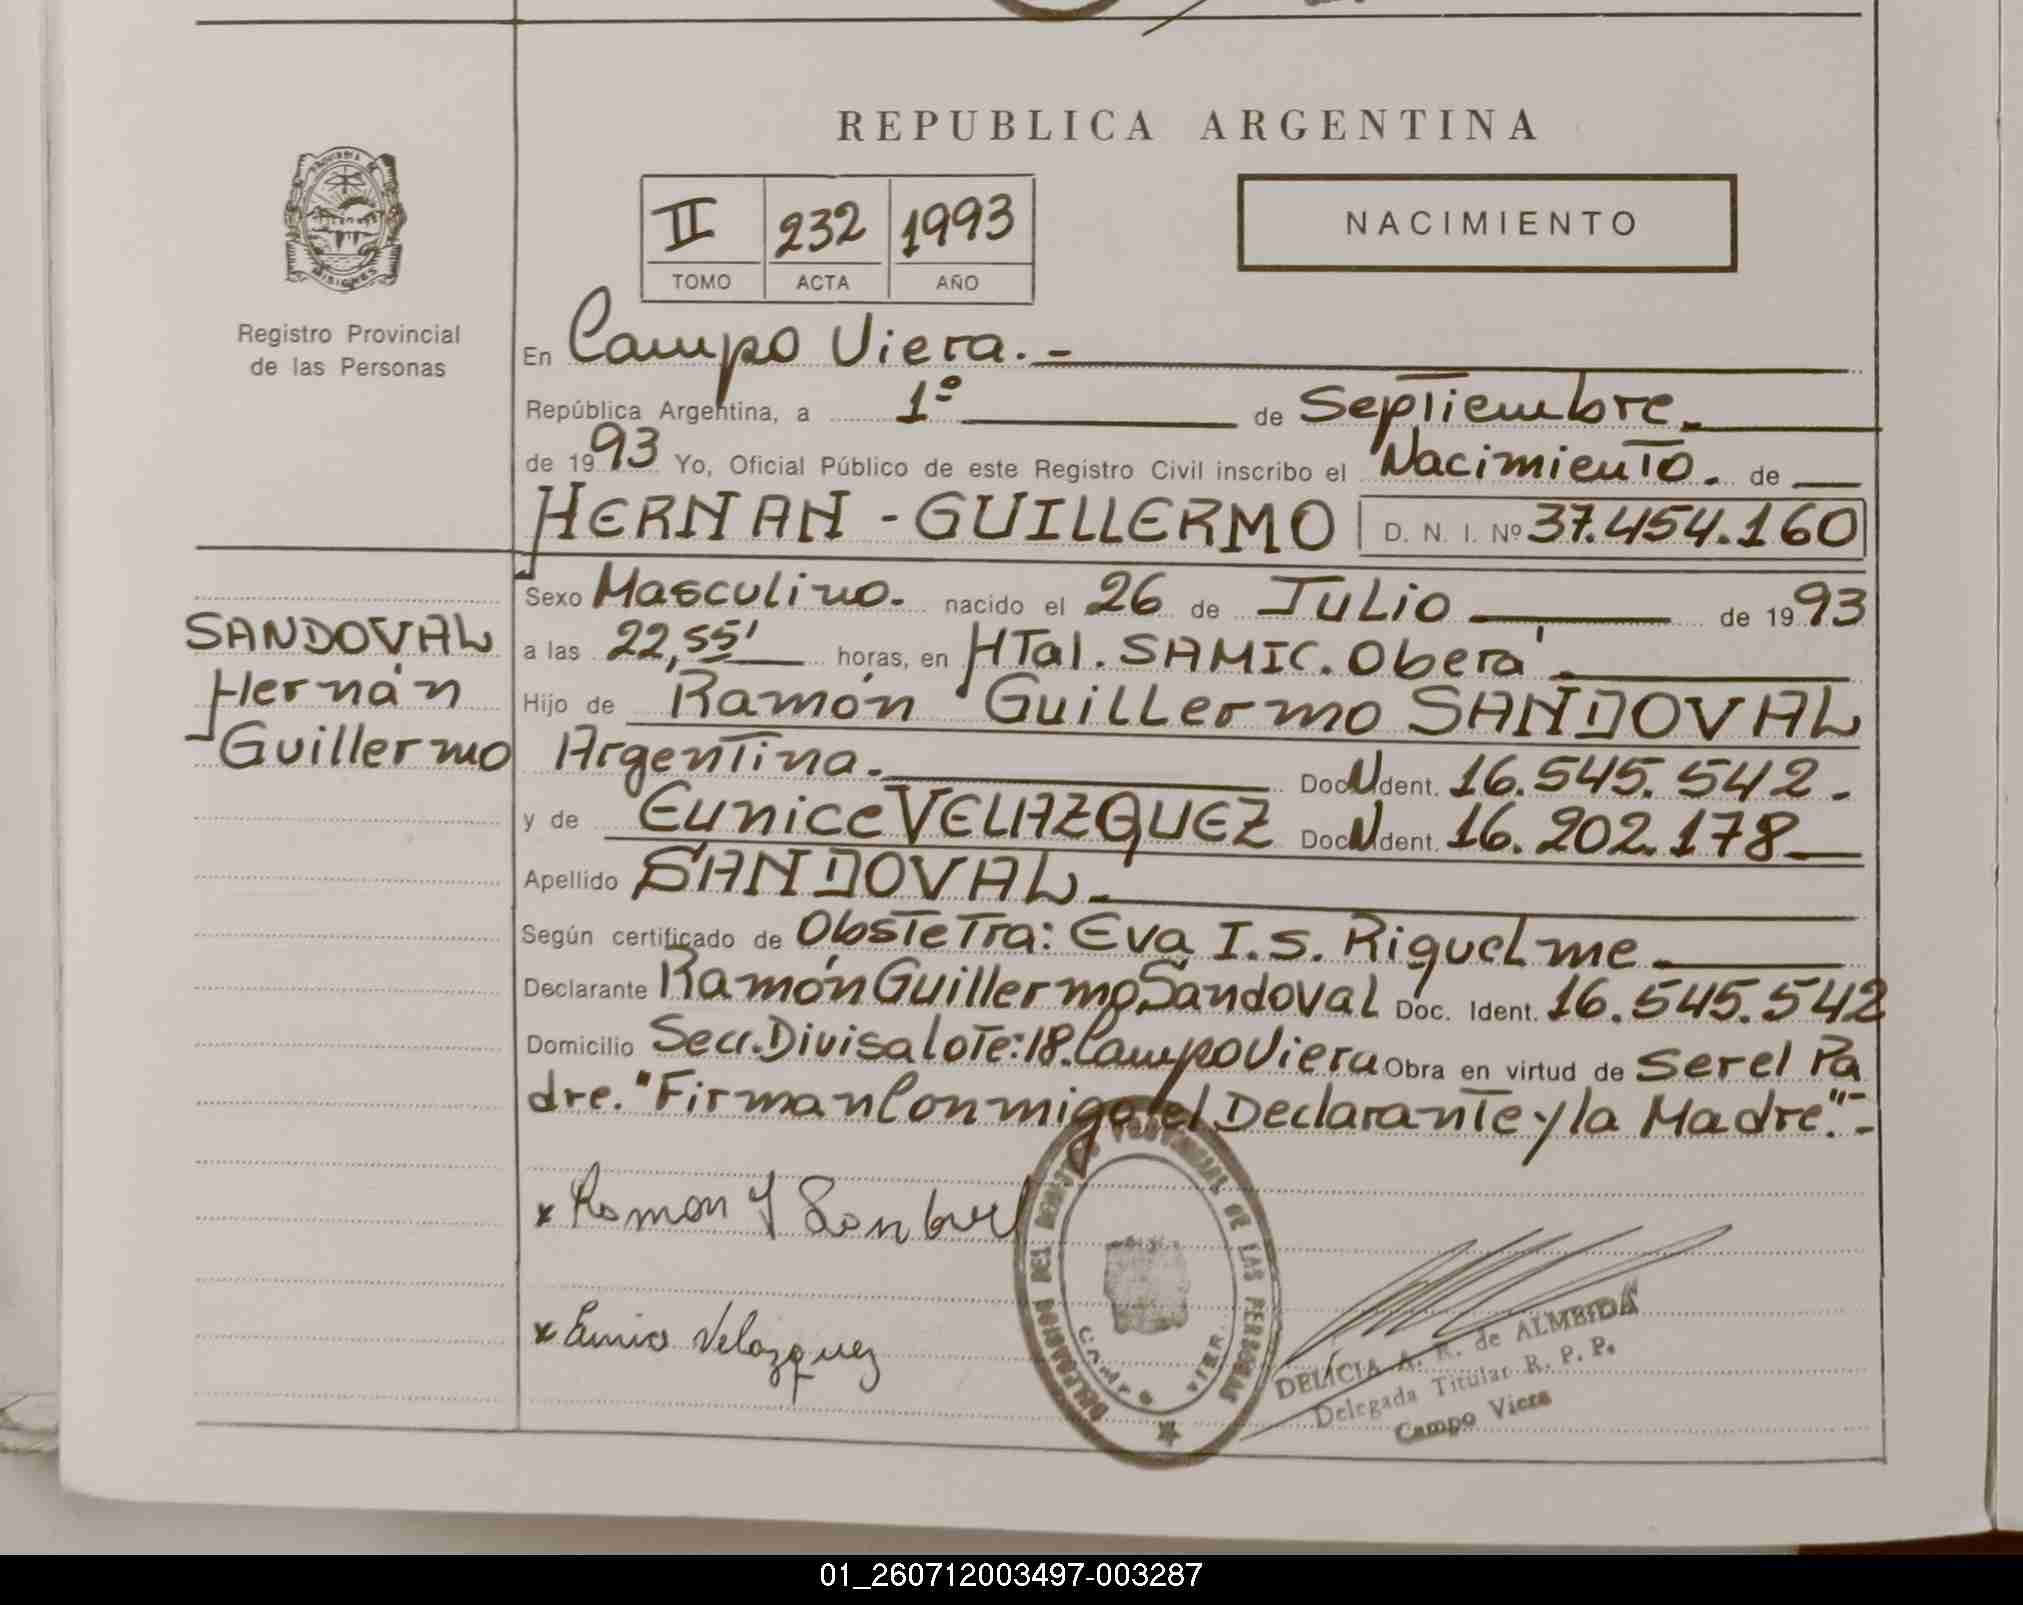 REPUBLICA ARGENTINA
II 232 1993
TOMO ACTA AÑO
NACIMIENTO
Registro Provincial
de las Personas
En Campo Viera.-
República Argentina, a 1º de Septiembre
de 1993 Yo, Oficial Público de este Registro Civil inscribo el Nacimiento. de
HERNAN - GUILLERMO D. N. I. Nº 37.454.160
SANDOVAL
Hernán
Guillermo
Sexo Masculino. nacido el 26 de Julio de 1993
a las 22,55' horas, en HTal. SAMIC. Oberá.
Hijo de Ramón Guillermo SANDOVAL
Argentina. Doc. Ident. 16.545.542.
y de Eunice VELAZQUEZ Doc. Ident. 16.202.178
Apellido SANDOVAL.
Según certificado de Obstetra: Eva I.S. Riquelme.
Declarante Ramón Guillermo Sandoval Doc. Ident. 16.545.542
Domicilio Secc. Divisa lote: 18. Campo Viera Obra en virtud de Ser el Pa
dre. "Firman Conmigo el Declarante y la Madre".-
x Ramon
x Eunice Velazquez
DELEGACION DEL REGISTRO PROVINCIAL DE LAS PERSONAS
CAMPO VIERA
DELICIA A. R. de ALMEIDA
Delegada Titular R. P. P.
Campo Viera
01_260712003497-003287